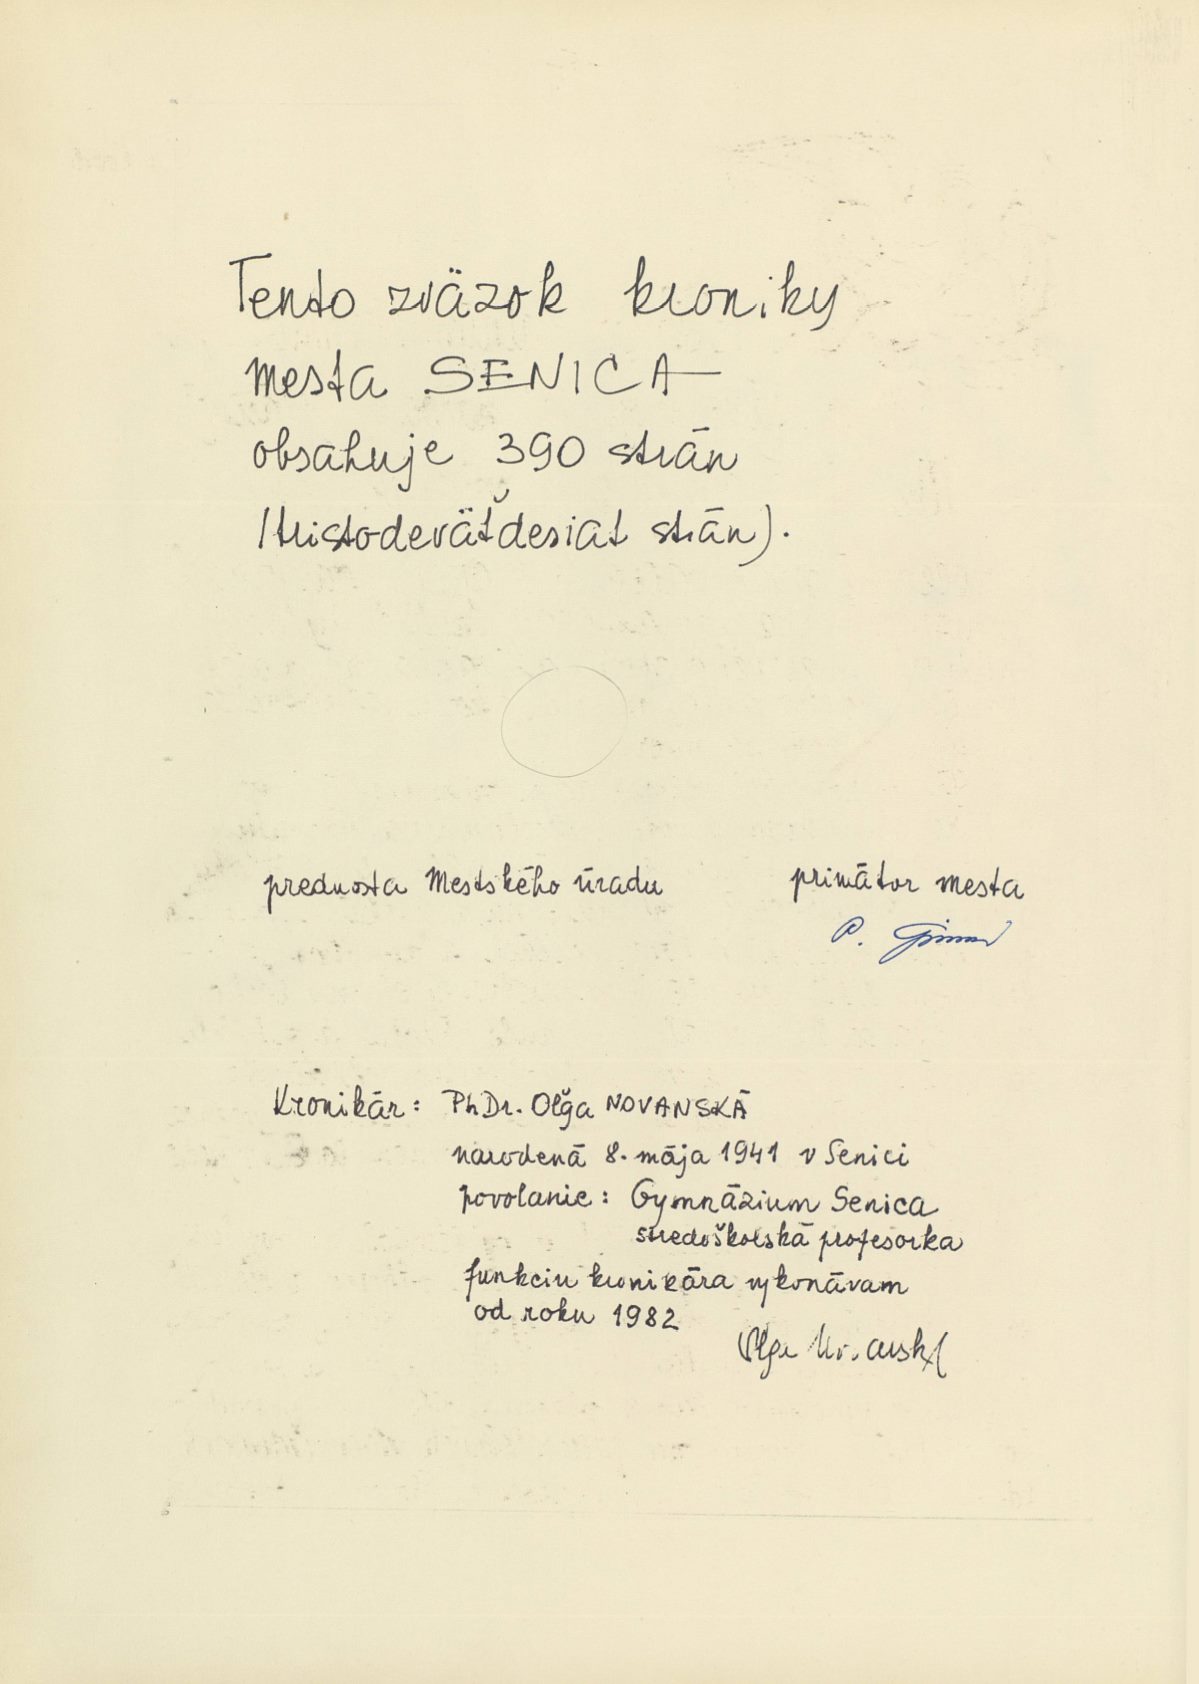 Tento zväzok kroniky
mesta SENICA
obsahuje 390 strán
/tristodeväťdesiat strán).
prednosta Mestského úradu
primátor mesta
P.
Kronikár: PhDr. Oľga NOVANSKÁ
narodená 8. mája 1941 v Senici
povolanie: Gymnázium Senica
stredoškolská profesorka
funkciu kronikára vykonávam
od roku 1982